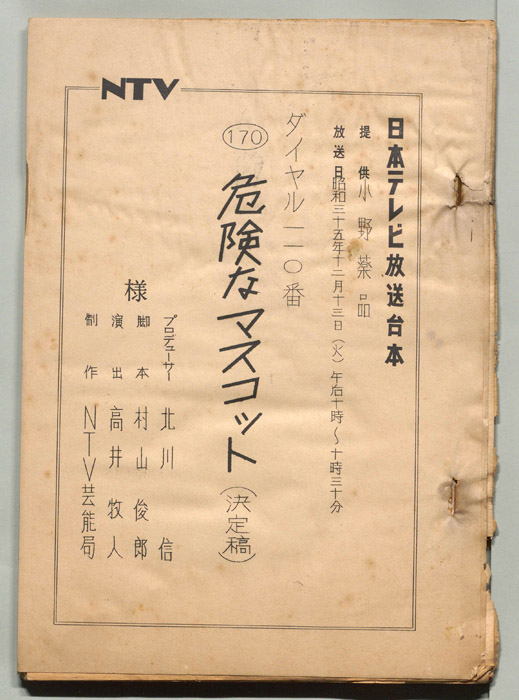 NTV
日本テレビ放送台本
提供 小野薬品
放送日 昭和三十五年十二月十三日(火)午后十時~十時三十分
ダイヤル一一〇番
170
危険なマスコット(決定稿)
プロデューサー 北川 信
脚本 村山俊郎
演出 高井牧人
制作 NTV芸能局
様